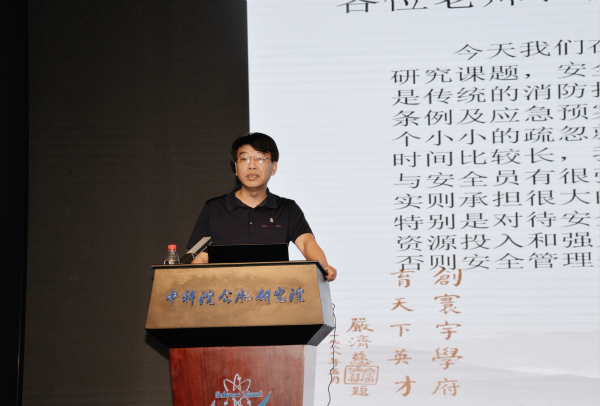 各位老师、
今天我们在
研究课题，安全
是传统的消防
条例及应急预
个小小的疏忽就
时间比较长，
与安全员有很
实则承担很大的
特别是对待安全
资源投入和强
否则安全管理
創寰宇學府
育天下英才
嚴濟慈
題
中科院合肥研究院
Science Island